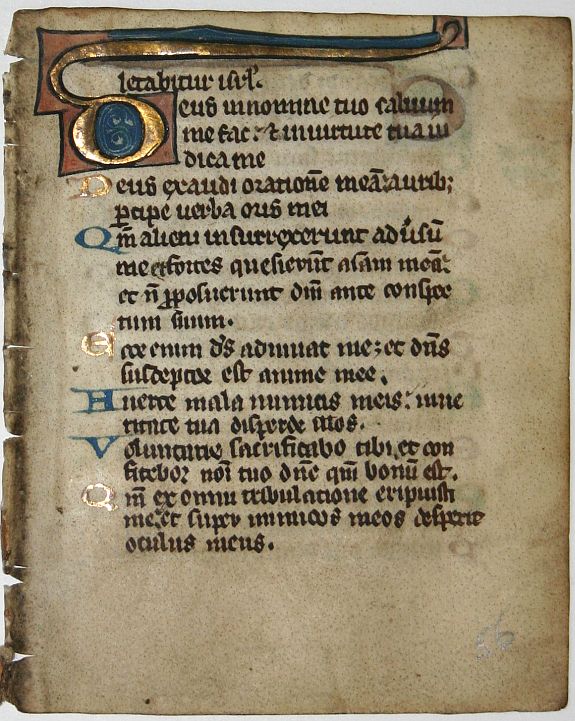 letabitur isrl.
Deus in nomine tuo saluum
me fac: et in uirtute tua iu
dica me
Deus exaudi oratione meā: aurib;
ꝑcipe uerba oris mei
Qm̄ alieni insurrexerunt aduʼsū
me et fortes quesierūt aīam meā:
et n̄ ꝓposuerunt dm̄ ante conspec
tum suum.
Ecce enim ds̄ adiuuat me; et dn̄s
susceptor est anime mee.
Auerte mala inimicis meis: inue
ritate tua disperde illos.
Voluntarie sacrificabo tibi, et con
fitebor noī tuo dn̄e qm̄ bonū est.
Qm̄ ex omni tribulatione eripuisti
me, et super inimicos meos despexit
oculus meus.
56